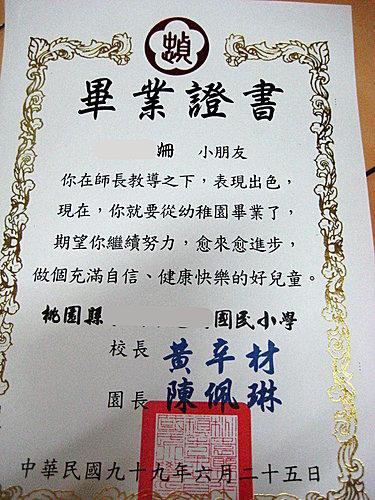 畢業證書
姍 小朋友
你在師長教導之下，表現出色，
現在，你就要從幼稚園畢業了，
期望你繼續努力，愈來愈進步，
做個充滿自信、健康快樂的好兒童。
桃園縣 國民小學
校長 黃辛材
園長 陳佩琳
中華民國九十九年六月二十五日